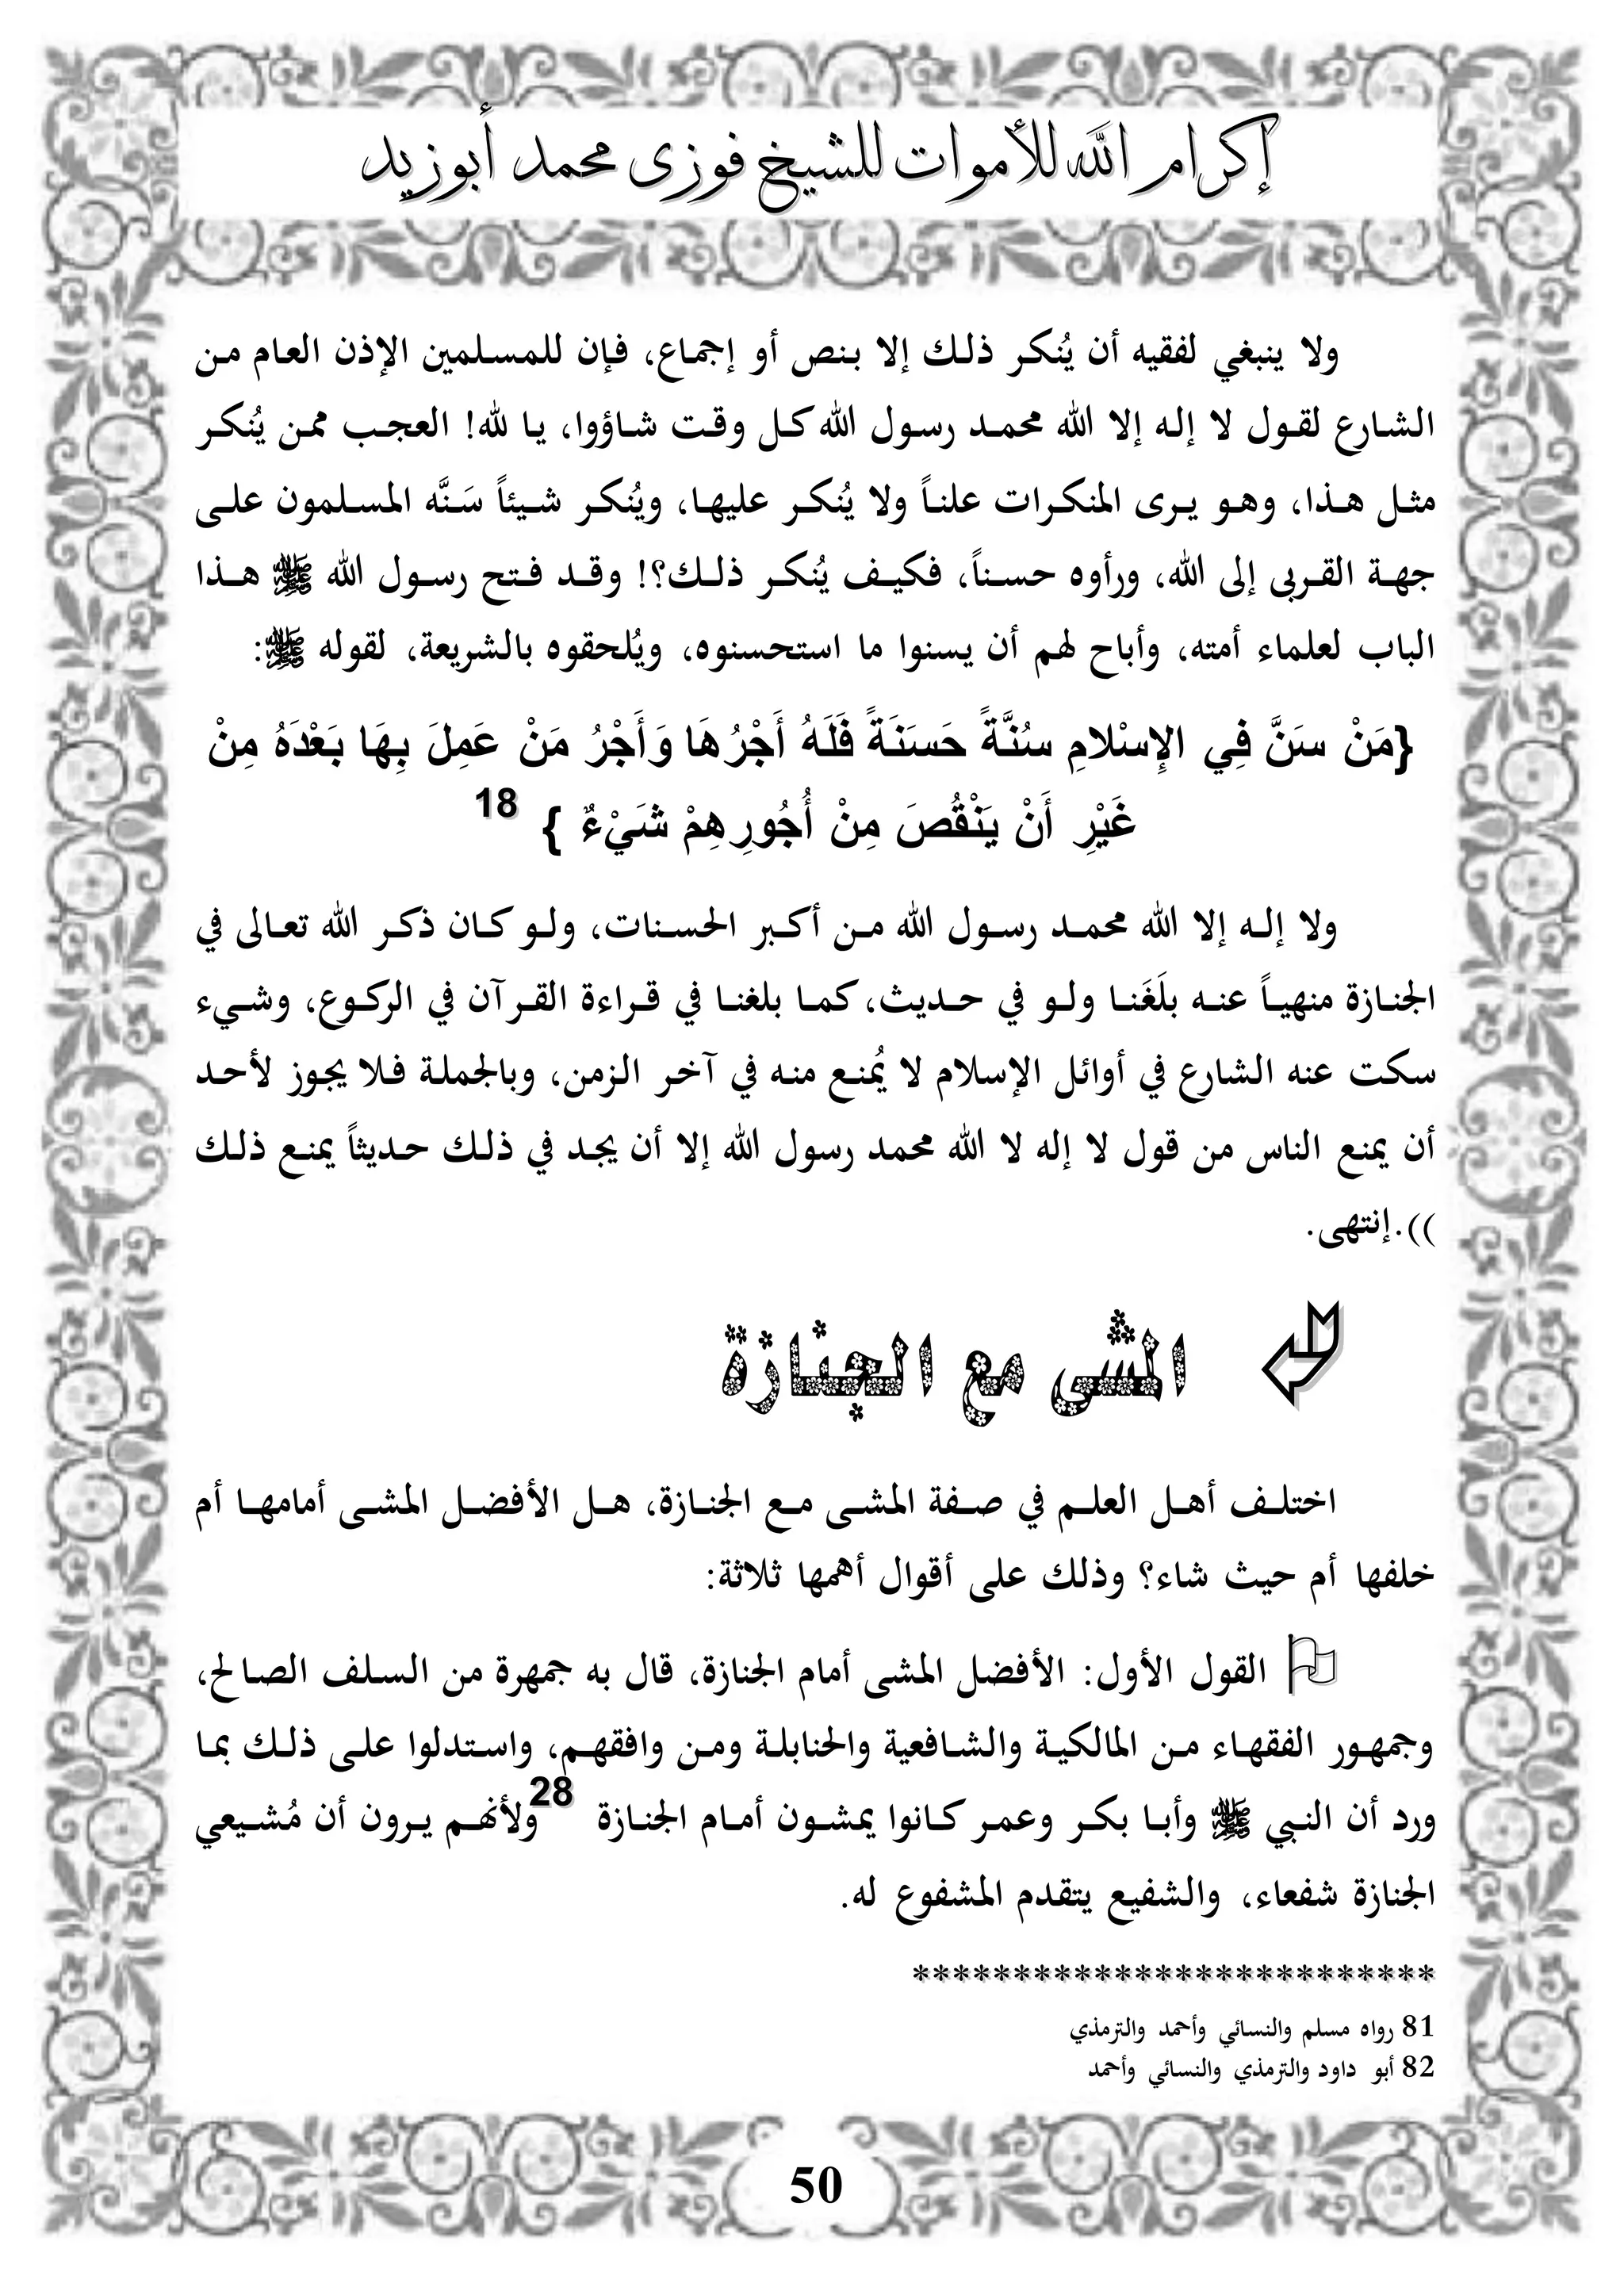 إكرام الله للأموات للشيخ فوزى محمد أبوزيد
ولا ينبغي لفقيه أن يُنكر ذلك إلا بنص أو إجماع، فإن للمسلمين الإذن العام من
الشارع لقول لا إله إلا الله محمد رسول الله كل وقت شاؤوا، يا لله! العجب ممن يُنكر
مثل هذا، وهو يرى المنكرات علناً ولا يُنكر عليها، ويُنكر شيئاً سَنَّه المسلمون على
جهة القربى إلى الله، ورأوه حسناً، فكيف يُنكر ذلك؟! وقد فتح رسول الله ﷺ هذا
الباب لعلماء أمته، وأباح لهم أن يسنوا ما استحسنوه، ويُلحقوه بالشريعة، لقوله ﷺ:
{مَنْ سَنَّ فِي الإِسْلامِ سُنَّةً حَسَنَةً فَلَهُ أَجْرُهَا وَأَجْرُ مَنْ عَمِلَ بِهَا بَعْدَهُ مِنْ
غَيْرِ أَنْ يَنْقُصَ مِنْ أُجُورِهِمْ شَيْءٌ } 18
ولا إله إلا الله محمد رسول الله من أكبر الحسنات، ولو كان ذكر الله تعالى في
الجنازة منهياً عنه بلَغَنا ولو في حديث، كما بلغنا في قراءة القرآن في الركوع، وشيء
سكت عنه الشارع في أوائل الإسلام لا يُمنع منه في آخر الزمن، وبالجملة فلا يجوز لأحد
أن يمنع الناس من قول لا إله لا الله محمد رسول الله إلا أن يجد في ذلك حديثاً يمنع ذلك
)).إنتهى.
المشى مع الجنازة
اختلف أهل العلم في صفة المشى مع الجنازة، هل الأفضل المشى أمامها أم
خلفها أم حيث شاء؟ وذلك على أقوال أهمها ثلاثة:
القول الأول: الأفضل المشى أمام الجنازة، قال به جمهرة من السلف الصالح،
وجمهور الفقهاء من المالكية والشافعية والحنابلة ومن وافقهم، واستدلوا على ذلك بما
ورد أن النبي ﷺ وأبا بكر وعمر كانوا يمشون أمام الجنازة 28 ولأنهم يرون أن مُشيعي
الجنازة شفعاء، والشفيع يتقدم المشفوع له.
**************************
81 رواه مسلم والنسائي وأحمد والترمذي
82 أبو داود والترمذي والنسائي وأحمد
50